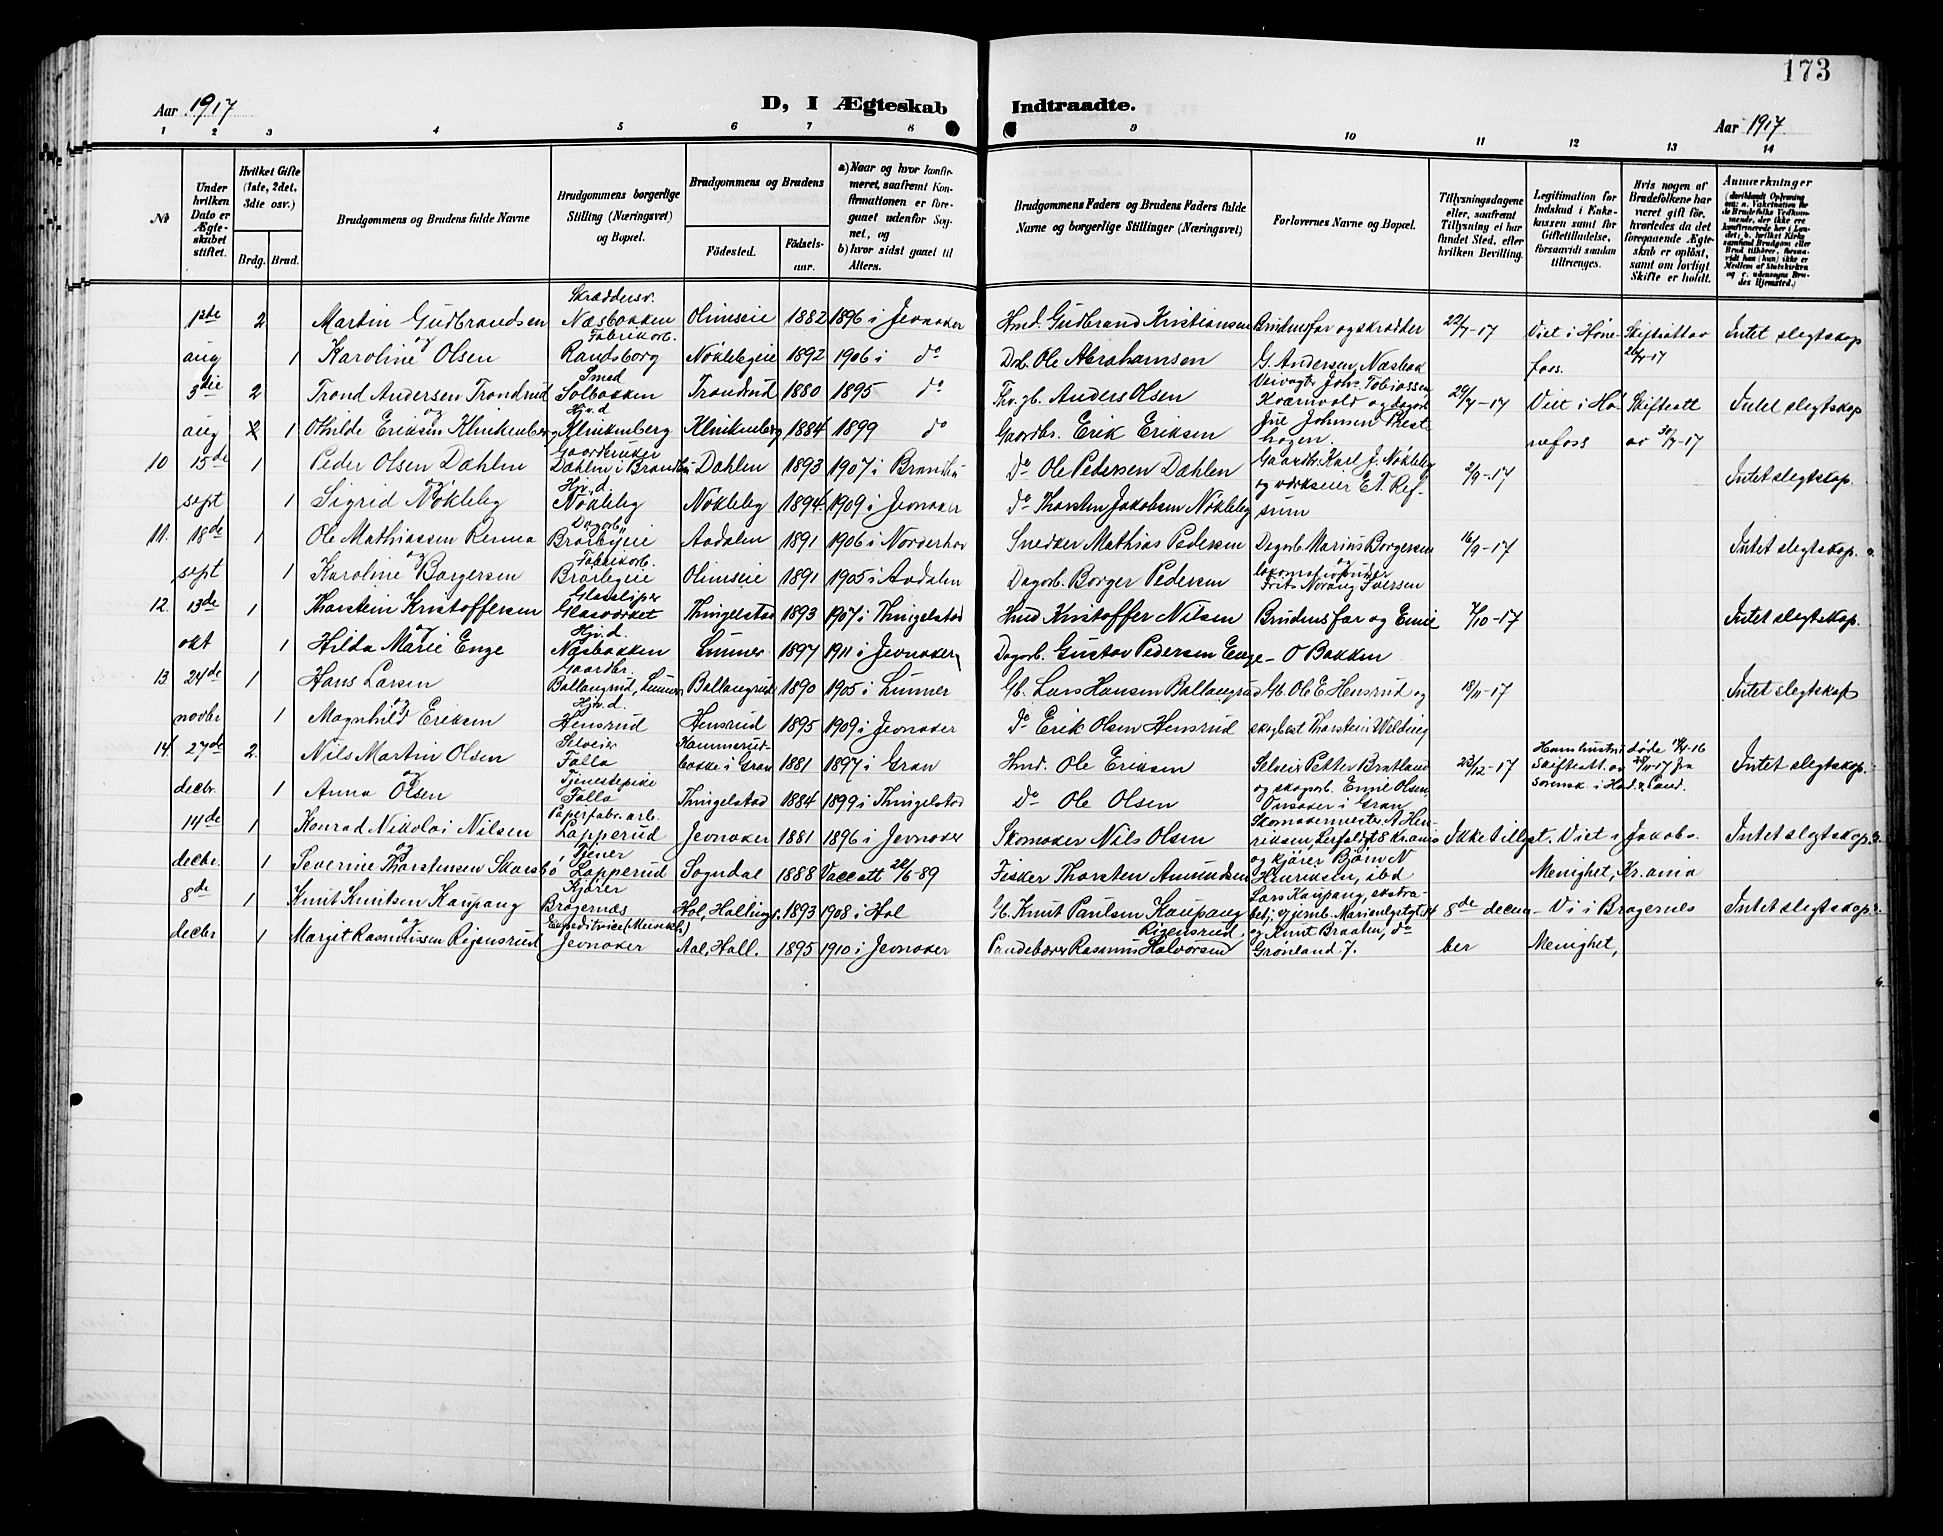 173
Aar 1917
D, I Ægteskab Indtraadte.
Aar 1917
1 2 3 4 5 6 7 8 9 10 11 12 13 14
No
Under hvilken Dato er Ægteskabet stiftet.
Hvilket Gifte (1ste, 2det, 3die osv.)
Brdg. Brud.
Brudgommens og Brudens fulde Navne
Brudgommens borgerlige Stilling (Næringsvei) og Bopæl.
Brudgommens og Brudens
Fødested. Fødselsaar.
a) Naar og hvor konfirmeret, saafremt Konfirmationen er foregaaet udenfor Sognet, og
b) hvor sidst gaaet til Alters.
Brudgommens Faders og Brudens Faders fulde Navne og borgerlige Stillinger (Næringsvei)
Forlovernes Navne og Bopæl.
Tillysningsdagene eller, saafremt Tillysning ei har fundet Sted, efter hvilken Bevilling.
Legitimation for Indskud i Enkekassen samt for Giftetilladelse, forsaavidt saadan tiltrænges.
Hvis nogen af Brudefolkene har været gift før, hvorledes da det foregaaende Ægteskab er opløst, samt om lovligt Skifte er holdt.
Anmærkninger
1ste 2 Martin Gudbrandsen Skræddersv. Næsbakken Olimseie 1882 1896 i Jevnaker Hmd. Gudbrand Kristiansen Brudens far og skrædder 22/7-17 Viet i Høne- Skifteatt av Intet slegtskap
aug 1 og Karoline Olsen Fabrikarb. Randsborg Nøklebyeie 1892 1906 i do Drb. Ole Abrahamsen G. Andersen, Næsbak foss. 26/7-17
3die 2 Trond Andersen Trondrud Smed Solbakken Trondrud 1880 1895 do Anders Olsen Joh. Tobiassen 29/7-17 Viet i Hø- Skifteatt Intet slegtskap
aug 2 1 og Othilde Eriksen Klinkenberg Hjv. d. Klinkenberg Klinkenberg 1884 1899 do Gaardbr. Erik Eriksen Kværnvold og dagarb. Johnsen Presthagen. nefoss av 30/7-17
10 15de 1 Peder Olsen Dæhlen Gaardbruker Dæhlen i Brandbu Dæhlen 1893 1907 i Brandbu Do Ole Pedersen Dæhlen Gaardbr. Karl J. Nøkleby 2/9-17 Intet slegtskap.
sept 1 og Sigrid Nøkleby Hjv. d. Nøkleby Nøkleby 1894 1909 i Jevnaker do Thorsten Jakobsen Nøkleby og verkseier E. A. Refsum
11. 18de 1 Ole Mathiassen Renna Dagarb. Braabyeie Aadalen 1891 1906 i Norderhov Snedker Mathias Pedersen Dagarb. Marius Borgersen 16/9-17 Intet slegtskap.
sept 1 og Karoline Borgersen Fabrikarb. Olimseie 1891 1905 i Aadalen Dagarb. Borger Pedersen og Iversen
12. 13de 1 Thorstein Kristoffersen Glassliper Glasværket Thingelstad 1893 1907 i Thingelstad Hmd Kristoffer Nilsen Brudens far og Emil 7/10-17 Intet slegtskap.
okt 1 og Hilda Marie Enge Hjv. d. Næsbakken Lunner 1897 1911 i Jevnaker Dagarb. Gustav Pedersen Enge O Bakken
13. 24de 1 Hans Larsen Gaardbr. Ballangrud, Lunner Ballangrud 1890 1905 i Lunner Gb. Lars Hansen Ballangrud Gb. Ole E. Hensrud og 18/11-17 Intet slegtskap
novbr 1 og Magnhild Eriksen Hjv. d. Hensrud Hensrud 1895 1909 i Jevnaker do Erik Olsen Hensrud Thorstein Velding
14 27de 2. Nils Martin Olsen Selveier Falla i Gran 1881 1897 i Gran Hmd. Ole Eriksen Selveier Petter Bratland 23/12-17 Intet slegtskap.
decbr. 1 og Anna Olsen Tjenestepike Falla Thingelstad 1884 1899 i Thingelstad Do Ole Olsen og skogarb. Olsen, i Gran i Had. & Land.
14de 1 Konrad Nikolai Nilsen Papirfabr. arb. Lapperud Jevnaker 1881 1896 i Jevnaker Skomaker Nils Olsen Skomakermester A Henriksen, Ikke tillyst. Viet i Jakobs Intet slegtskap.
decbr. 1 og Severine Thorstensen Skaresbø Tjener Lapperud Sogndal 1888 Vaccatt 28/6-89 Fisker Thorsten Amundsen og kjører Bjarn N Henriksen, ibd Menighet, Kr.ania
8de 1 Knut Knutsen Kaupang Kjører Bragernæs Hol, Hallingd. 1893 1908 i Hol Gb. Knut Paulsen Kaupang Lars Kaupang, 8de decem- Vi i Bragernes Intet slegtskap.
decbr 1 og Margit Rasmussen Rigensrud Jevnaker Aal, Hall. 1895 1910 i Jevnaker Rasmus Halvorsen Rigensrud og Knut Braaten, do Grønland 7. ber Menighet,